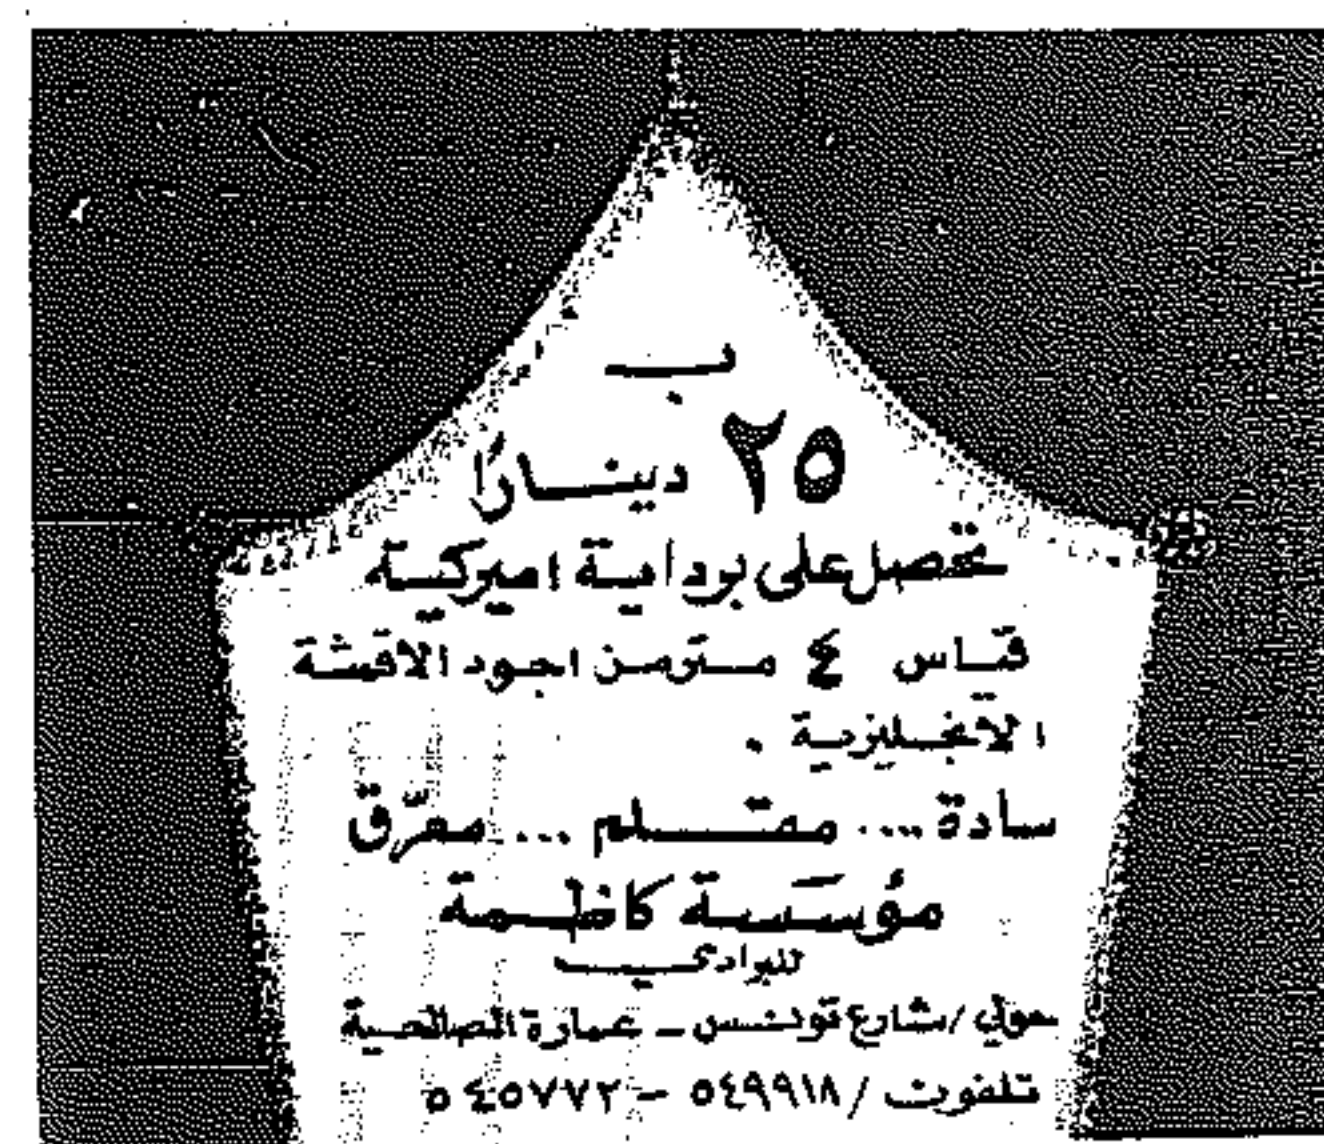 بـ
٢٥ دينـارًا
تحصل على برداية اميركية
قياس ٤ متر من اجود الاقمشة
الانجليزية .
سادة .... مقلم ... معرّق
مؤسسة كاظمة
للبرادي
حولي / شارع تونس - عمارة الصالحية
تلفون / ٥٤٩٩١٨ - ٥٤٥٧٧٢